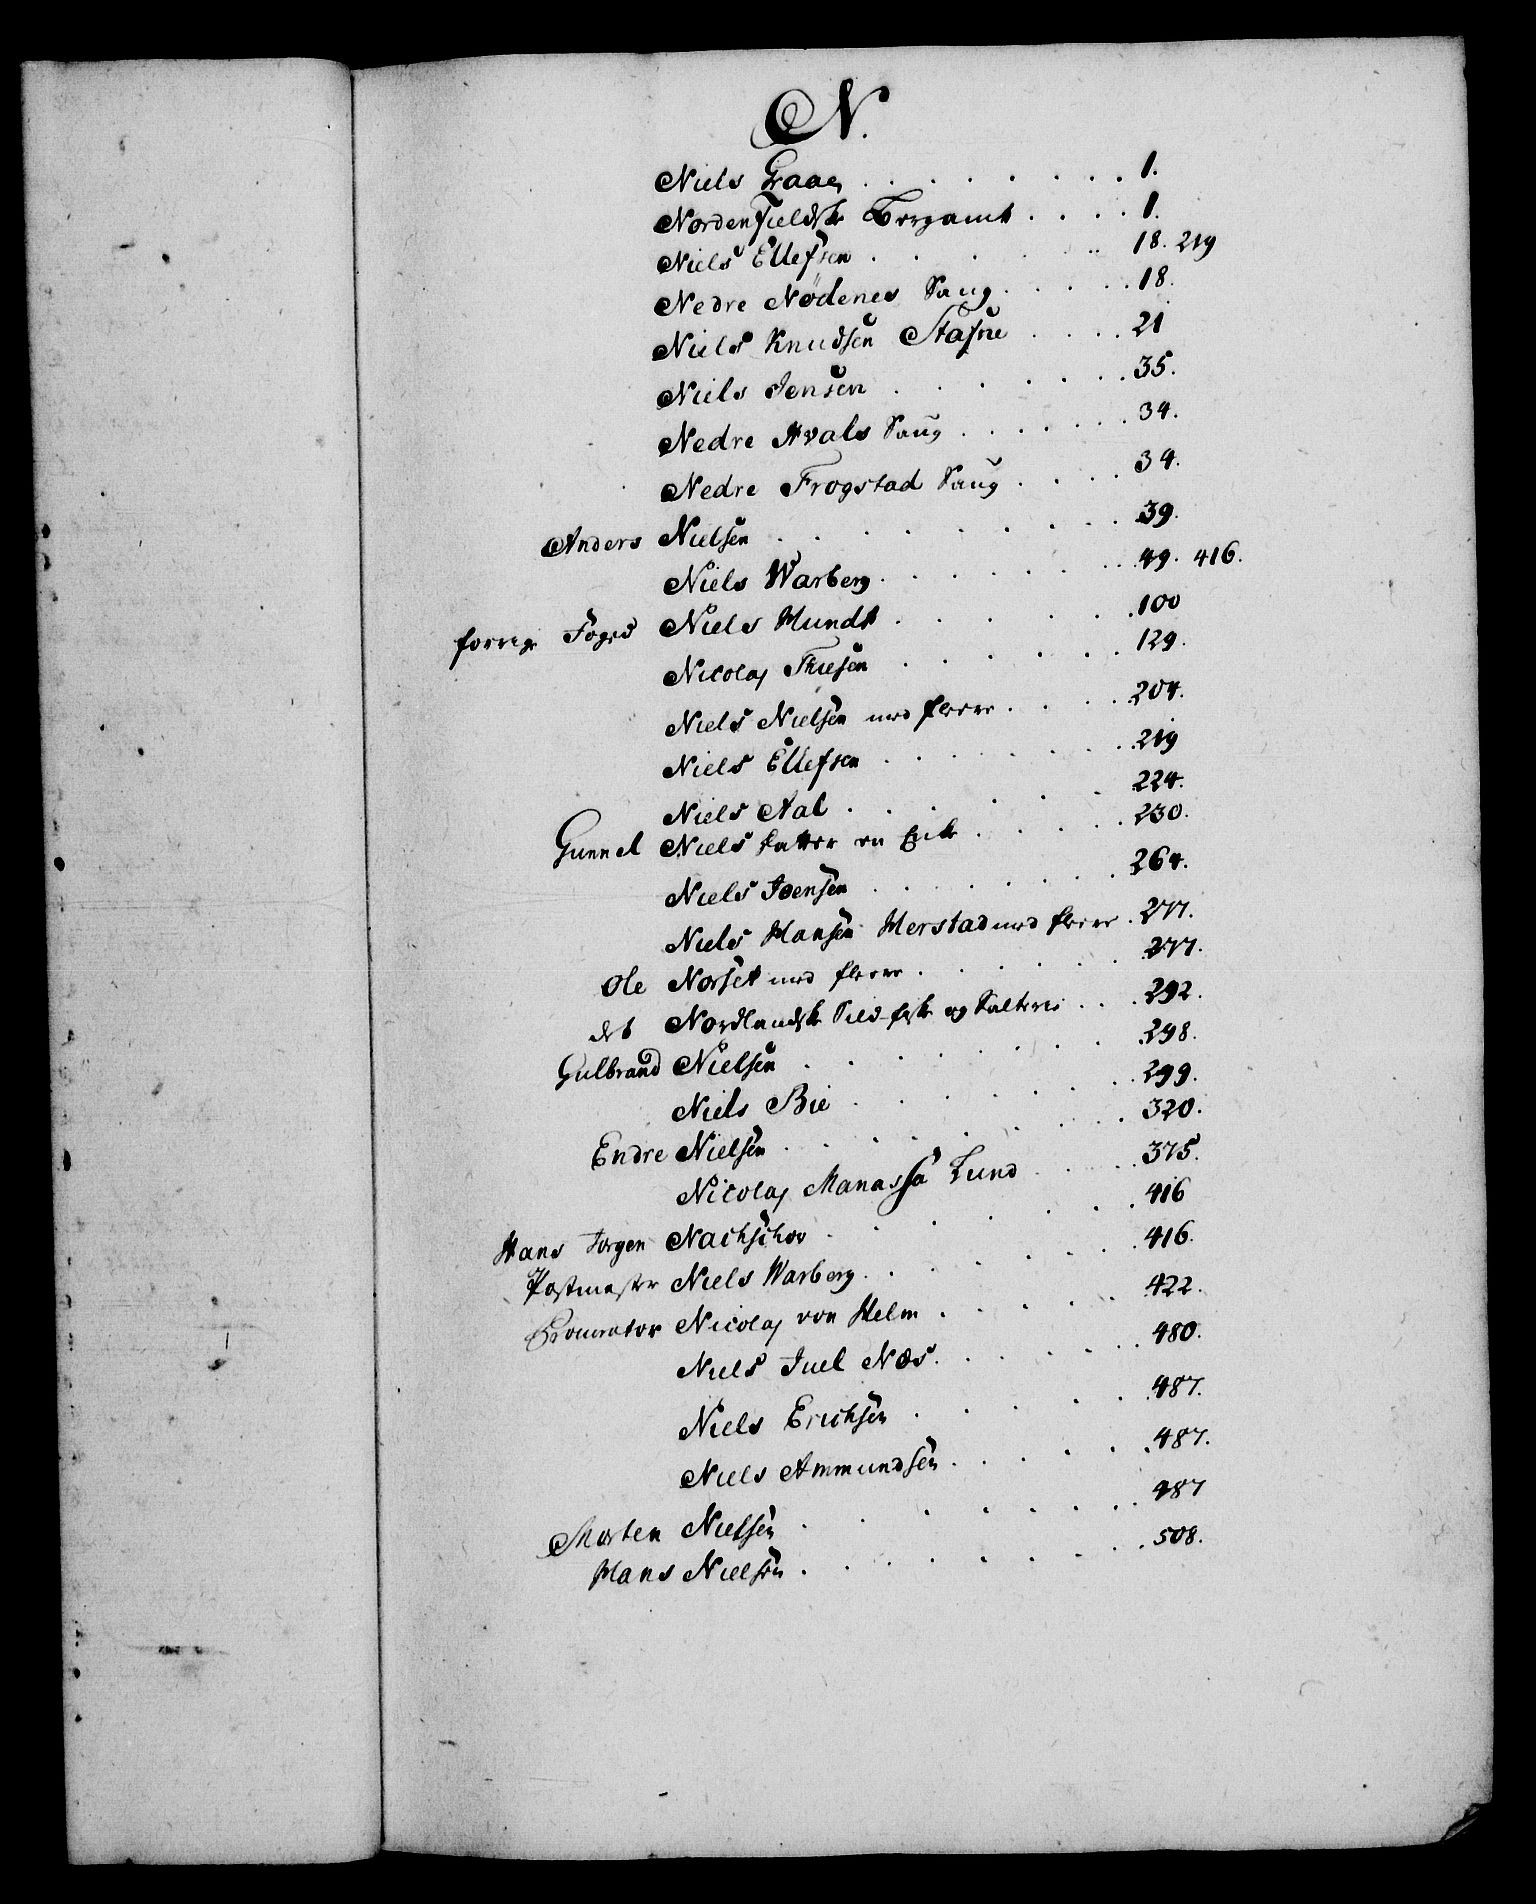 N.
Niels Graae . . . . . . . . 1.
Nordenfieldske Bergamt . . . . 1.
Niels Ellefsen . . . . . . 18. 219
Nedre Nödenes Saug . . . . . 18.
Niels Knudsen Stafne . . . . 21
Niels Jensen . . . . . . . 35.
Nedre Hvals Saug . . . . . . . 34.
Nedre Frogstad Saug . . . . 34.
Anders Nielsen . . . . . . . . . 39.
Niels Warberg . . . . . . . 49. 416.
forrige Foged Niels Mundt . . . . . . 100
Nicolaj Thiesen . . . . . . 129.
Niels Nielsen med fleere . . . . 204.
Niels Ellefsen . . . . . . . 219
Niels Aal . . . . . . 224.
Gunnel Niels datter en Enke . . . . . 230.
Niels Joensen . . . . . . . 264.
Niels Hansen Herstad med fleere . 277.
Ole Norset med fleere . . . . . . 277.
det Nordlandske Sild-fiske og Salterie . . . 292.
Gulbrand Nielsen . . . . . . . . 298.
Niels Bie . . . . . . . 299.
Endre Nielsen . . . . . . . . . 320.
Nicolaj Manassa Lund . . . . 375.
Hans Jørgen Nachschov . . . . . . 416
Postmester Niels Warberg . . . . . . . 416.
Procurator Nicolaj von Helm . . . . . 422.
Niels Juel Næs . . . . . . 480.
Niels Erichsen . . . . . 487.
Niels Ammundsen . . . . . 487.
Morten Nielsen . . . . . . . 487
Hans Nielsen . . . . . . . . 508.